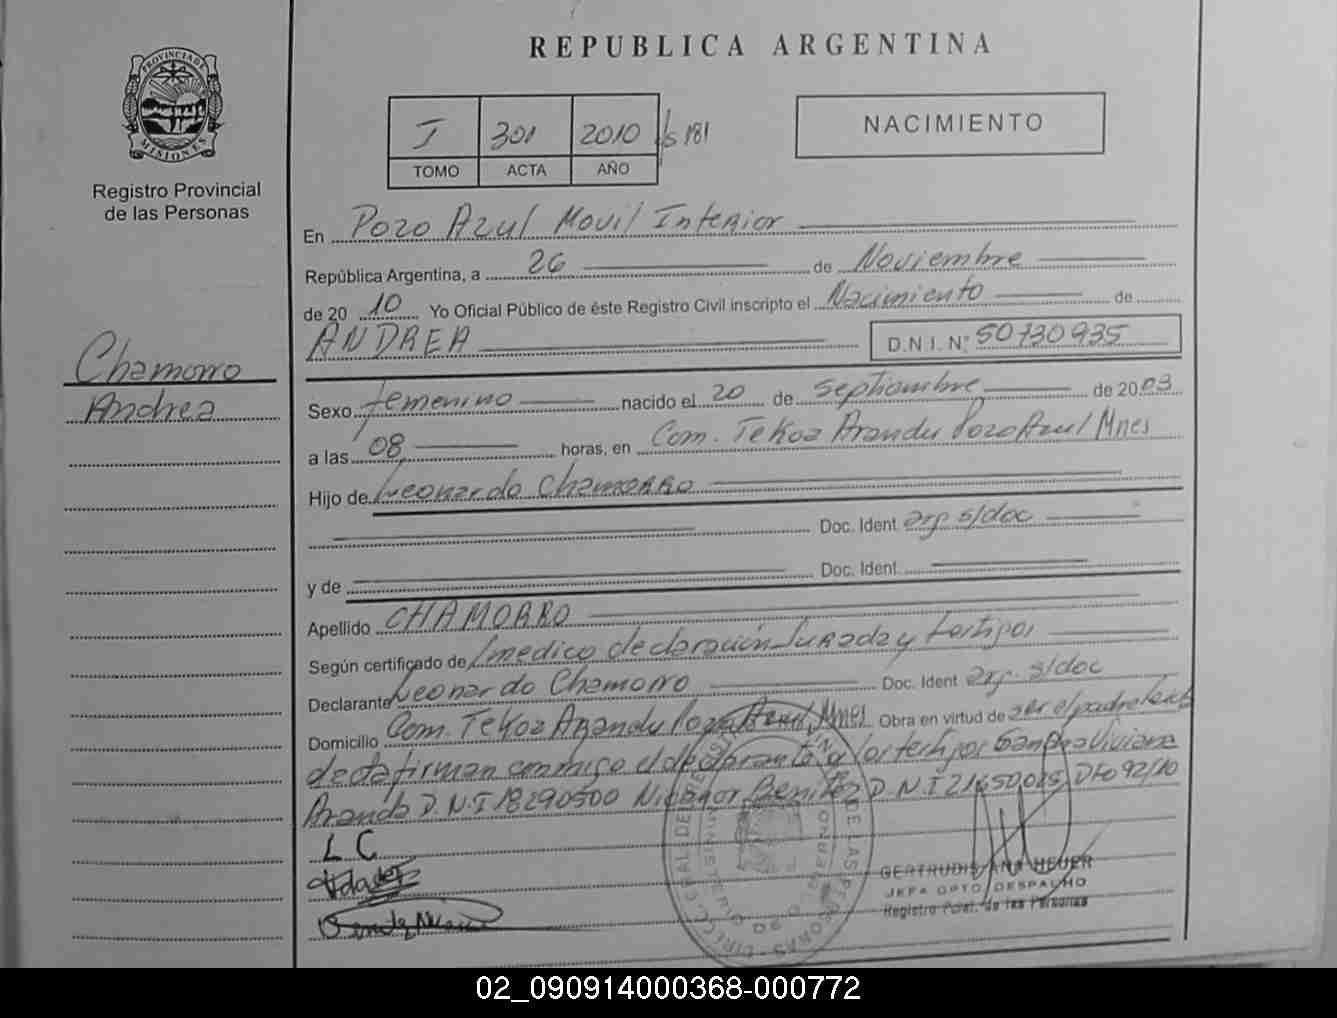 REPUBLICA ARGENTINA
PROVINCIA DE MISIONES
Registro Provincial
de las Personas
I 301 2010 fs 181
TOMO ACTA AÑO
NACIMIENTO
En Pozo Azul Movil Interior
República Argentina, a 26 de Noviembre
de 20 10 Yo Oficial Público de éste Registro Civil inscripto el Nacimiento de
ANDREA D.N.I. Nº 50730935
Chamorro
Andrea
Sexo femenino nacido el 20 de Septiembre de 2003
a las 08 horas, en Com. Tekoa Arandu Pozo Azul Mnes
Hijo de Leonardo Chamorro
Doc. Ident arg s/doc
y de Doc. Ident.
Apellido CHAMORRO
Según certificado de /medico declaración Jurada y testigos
Declarante Leonardo Chamorro Doc. Ident arg. s/doc
Domicilio Com. Tekoa Arandu Pozo Azul, Mnes Obra en virtud de ser el padre
firman conmigo el declarante y los testigos
D.N.I 18290500 Nicanor Benitez D.N.I 21650025 Dto 92/10
L C
GERTRUDIS ANA HEUER
JEFA DPTO. DESPACHO
Registro Pcial. de las Personas
02_090914000368-000772